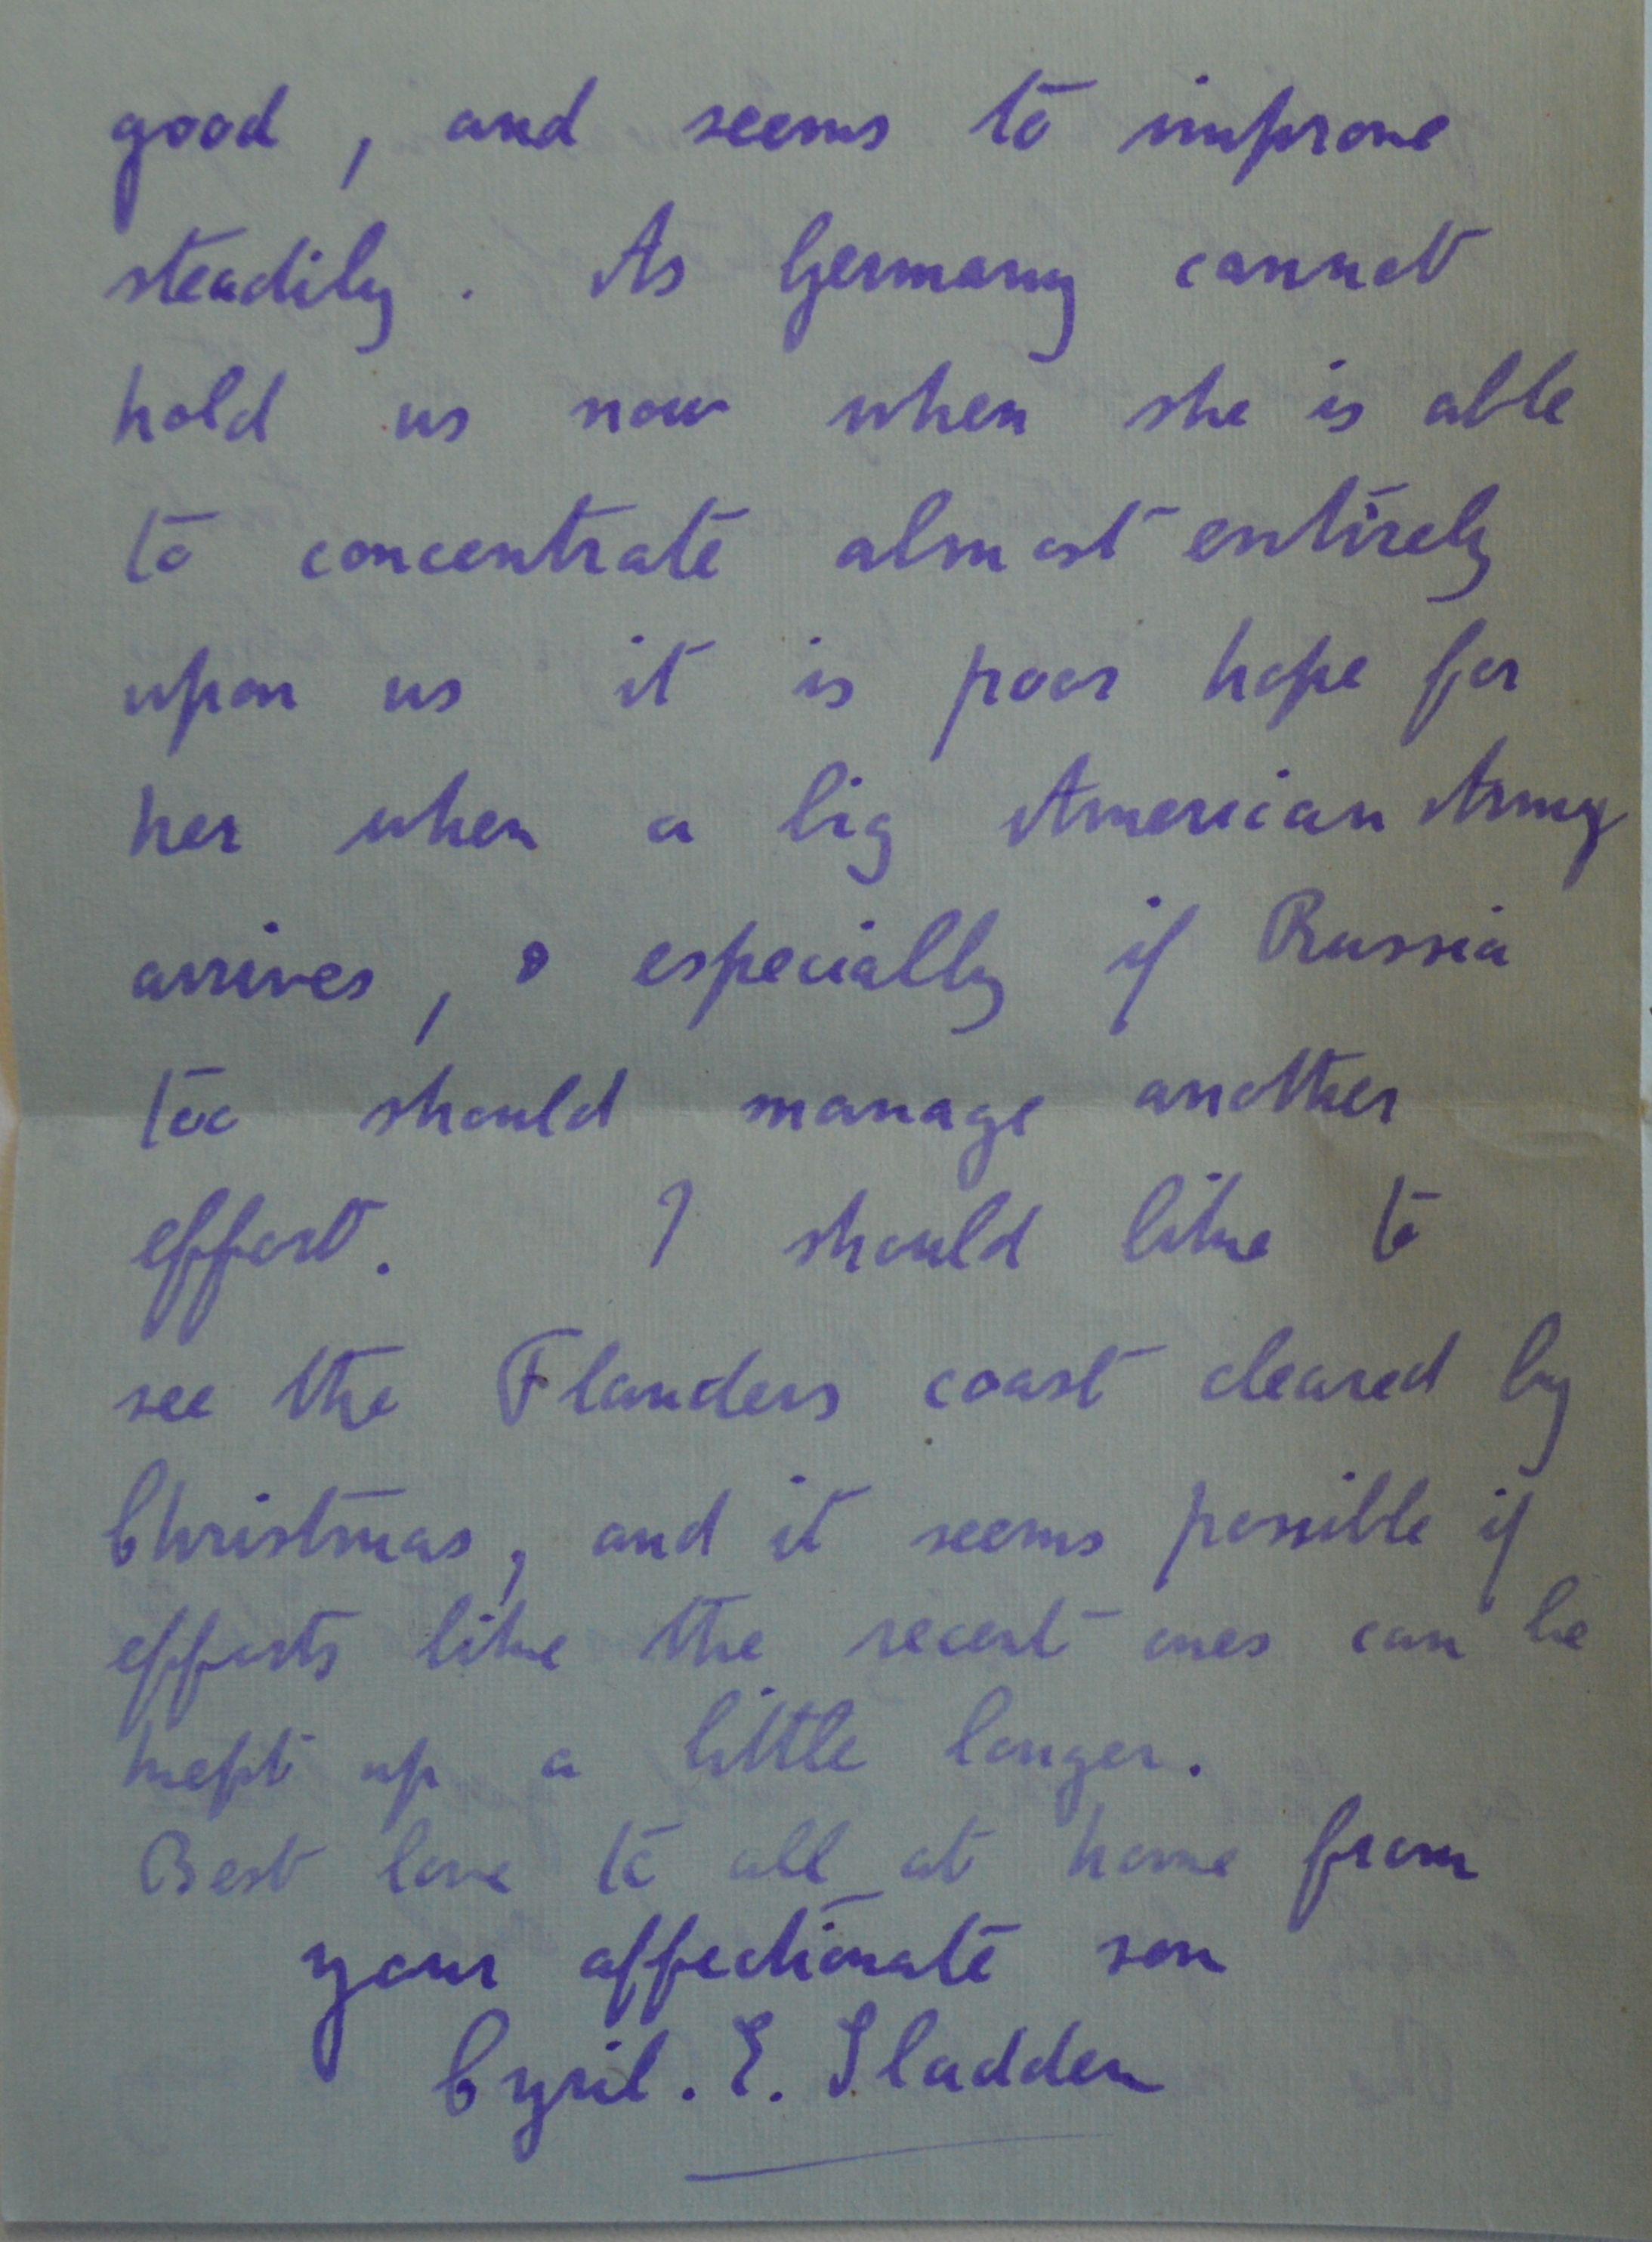 good, and seems to improve
steadily. As Germany cannot
hold us now when she is able
to concentrate almost entirely
upon us it is poor hope for
her when a big American Army
arrives, & especially if Russia
too should manage another
effort. I should like to
see the Flanders coast cleared by
Christmas, and it seems possible if
efforts like the recent ones can be
kept up a little longer.
Best love to all at home from
your affectionate son
Cyril. E. Sladden